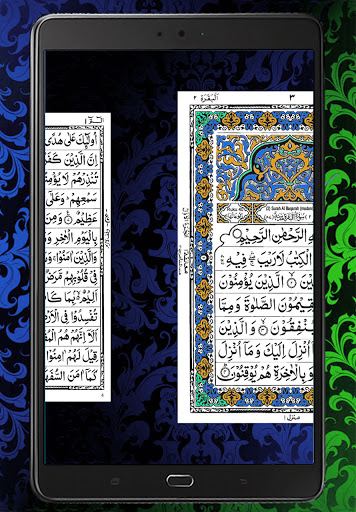 ٣
البقرة ٢
(2) Surah Al Baqarah
ـهِ الرَّحْمٰنِ الرَّحِيْمِ
الْكِتٰبُ لَا رَيْبَ ۛ فِيْهِ
الَّذِيْنَ يُؤْمِنُوْنَ
يُقِيْمُوْنَ الصَّلٰوةَ وَمِمَّا
يُنْفِقُوْنَ وَالَّذِيْنَ
اُنْزِلَ اِلَيْكَ وَمَاۤ اُنْزِلَ
وَبِالْاٰخِرَةِ هُمْ يُوْقِنُوْنَ
منزل ١
الٓمّٓ ١
اُولٰٓئِكَ عَلٰى هُدًى
اِنَّ الَّذِيْنَ كَفَـ
تُنْذِرْهُمْ لَا يُؤْمِنُـ
سَمْعِهِمْ ؕ وَعَلٰۤى
عَظِيْمٌ
بِالْيَوْمِ الْاٰخِرِ وَ
وَالَّذِيْنَ اٰمَنُوْا ۚ وَ
فِيْ قُلُوْبِهِمْ مَّرَضٌ
اَلِيْمٌۢ بِمَا كَا
تُفْسِدُوْا فِى الْاَ
اَلَاۤ اِنَّهُمْ هُمُ الْمُـ
قِيْلَ لَهُمْ اٰمِنُوْا
كَمَاۤ اٰمَنَ السُّفَهَـ